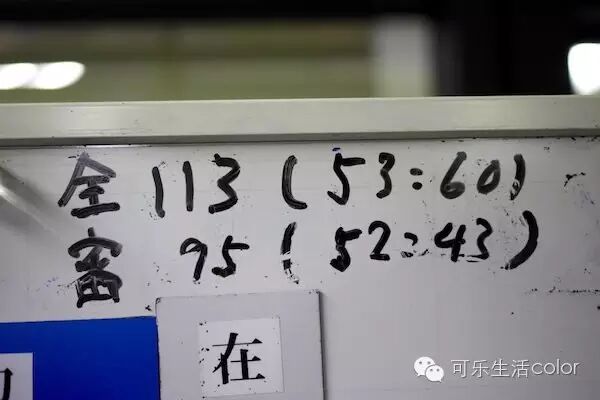 全 113 (53:60)
審 95 (52:43)
在
可乐生活color